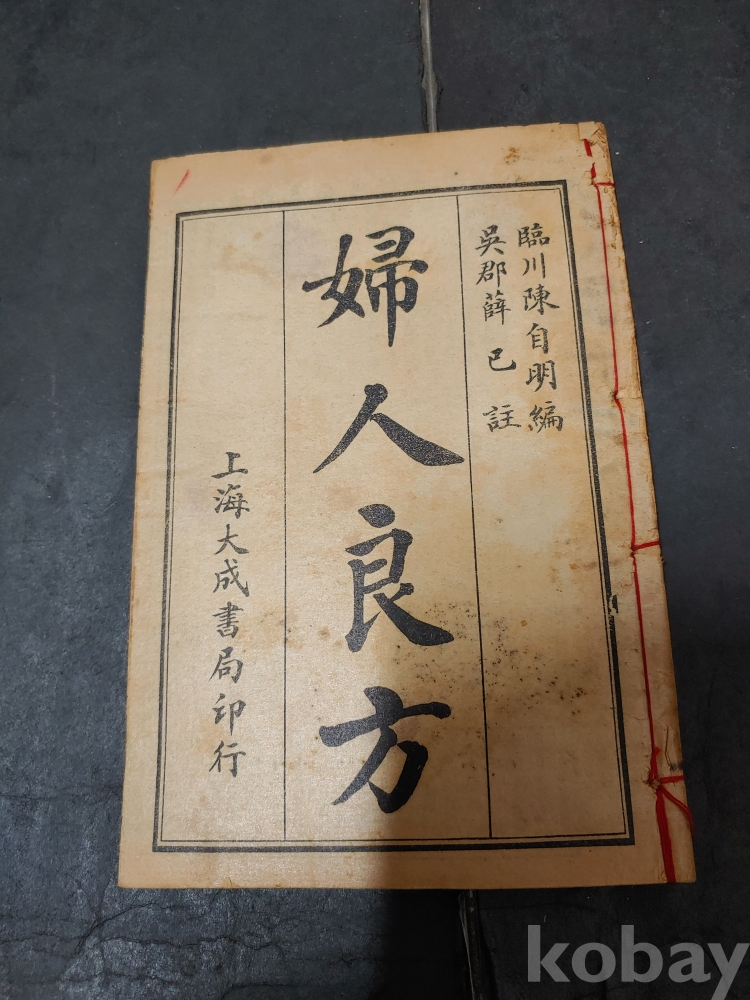 臨川陳自明編
吳郡薛已註
婦人良方
上海大成書局印行
kobay